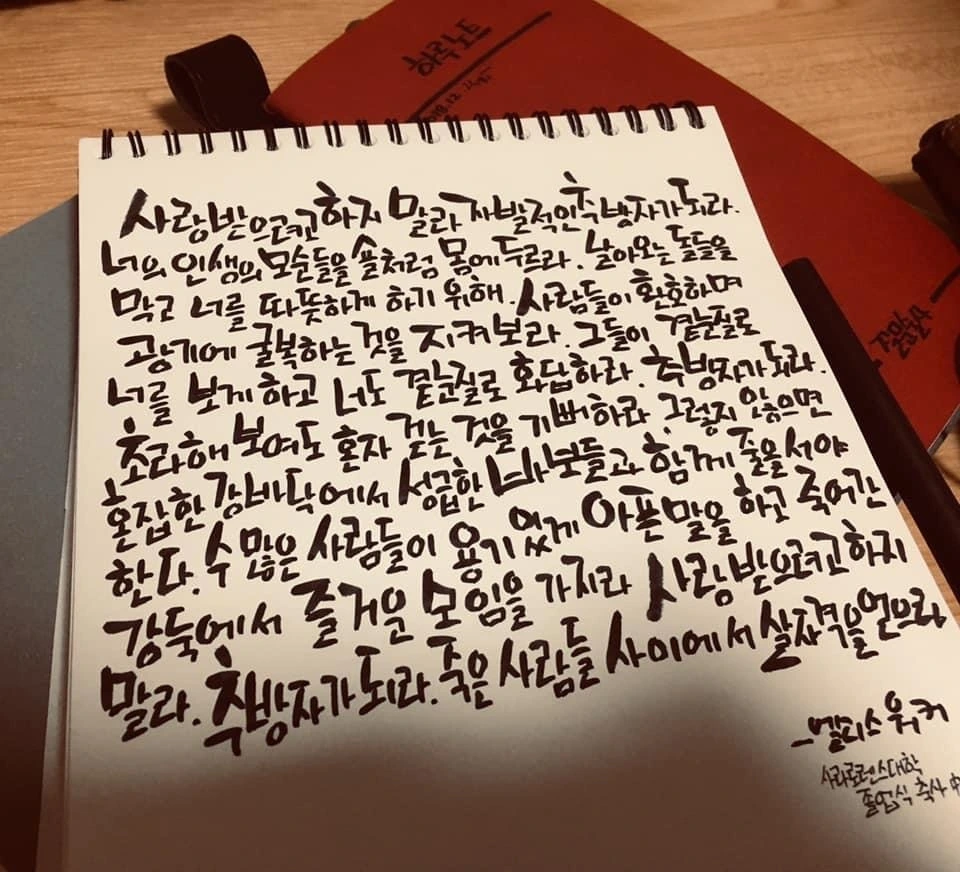 하루노트
2018.12.
사랑받으려고 하지 말라. 자발적인 추방자가 되라.
너의 인생의 모순들을 숄처럼 몸에 두르라. 날아오는 돌들을
막고 너를 따뜻하게 하기 위해. 사람들이 환호하며
광기에 굴복하는 것을 지켜보라. 그들이 곁눈질로
너를 보게 하고 너도 곁눈질로 화답하라. 추방자가 되라.
초라해 보여도 혼자 걷는 것을 기뻐하라. 그렇지 않으면
혼잡한 강바닥에서 성급한 바보들과 함께 줄을 서야
한다. 수 많은 사람들이 용기 있게 아픈 말을 하고 죽어간
강둑에서 즐거운 모임을 가지라 사랑받으려고 하지
말라. 추방자가 되라. 죽은 사람들 사이에서 살 자격을 얻으라
-앨리스 워커
사라로렌스대학
졸업식 축사 中